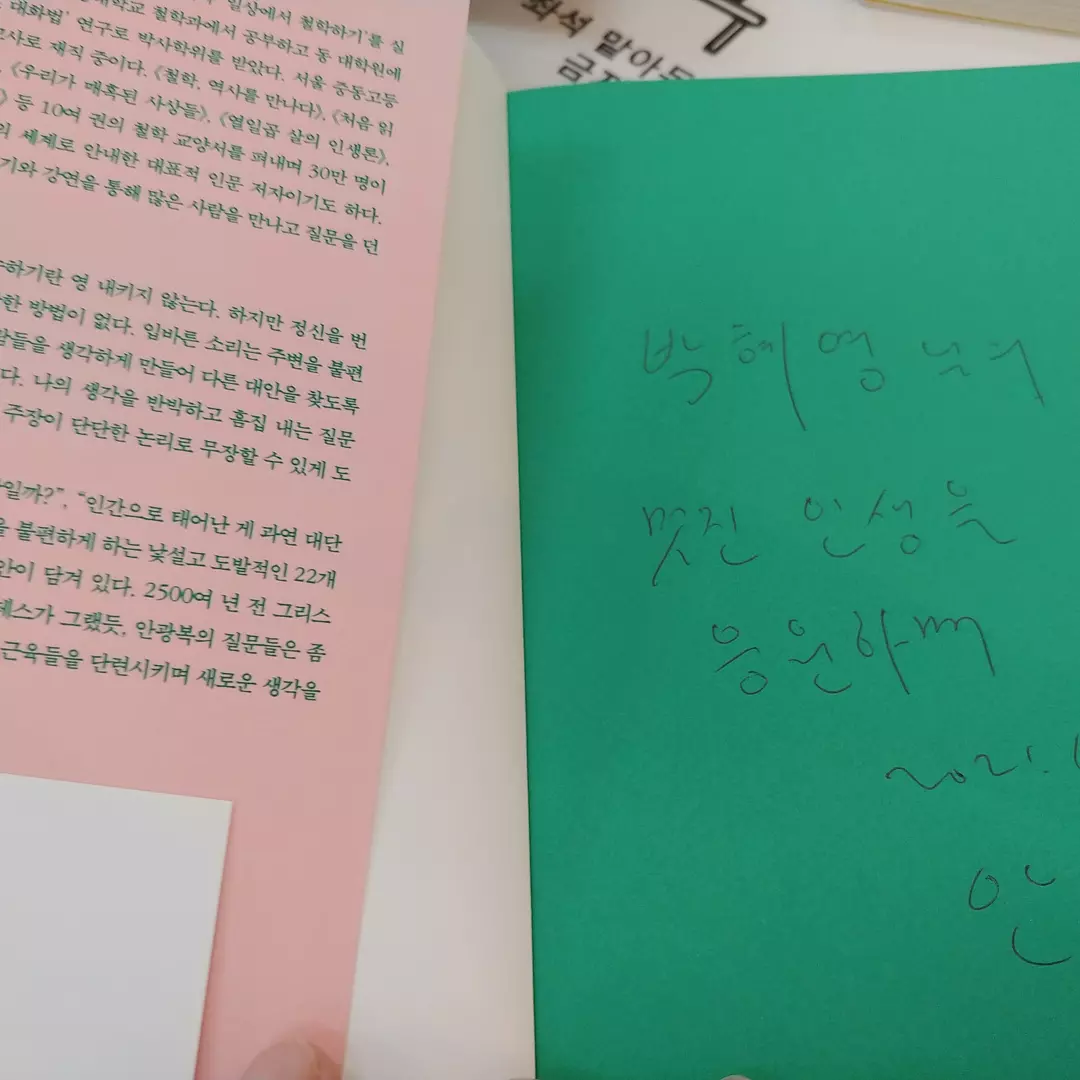 일상에서 철학하기'를 실
대학교 철학과에서 공부하고 동 대학원에
대화법' 연구로 박사학위를 받았다. 서울 중동고등
교사로 재직 중이다. 《철학, 역사를 만나다》, 《처음 읽
《우리가 매혹된 사상들》, 《열일곱 살의 인생론》,
》 등 10여 권의 철학 교양서를 펴내며 30만 명이
의 세계로 안내한 대표적 인문 저자이기도 하다.
기와 강연을 통해 많은 사람을 만나고 질문을 던
하기란 영 내키지 않는다. 하지만 정신을 번
한 방법이 없다. 입바른 소리는 주변을 불편
람들을 생각하게 만들어 다른 대안을 찾도록
다. 나의 생각을 반박하고 흠집 내는 질문
주장이 단단한 논리로 무장할 수 있게 도
일까?", "인간으로 태어난 게 과연 대단
을 불편하게 하는 낯설고 도발적인 22개
안이 담겨 있다. 2500여 년 전 그리스
테스가 그랬듯, 안광복의 질문들은 좀
근육들을 단련시키며 새로운 생각을
좌석 맡아두
금지
박혜영 님의
멋진 인생을
응원하며
2021.
안